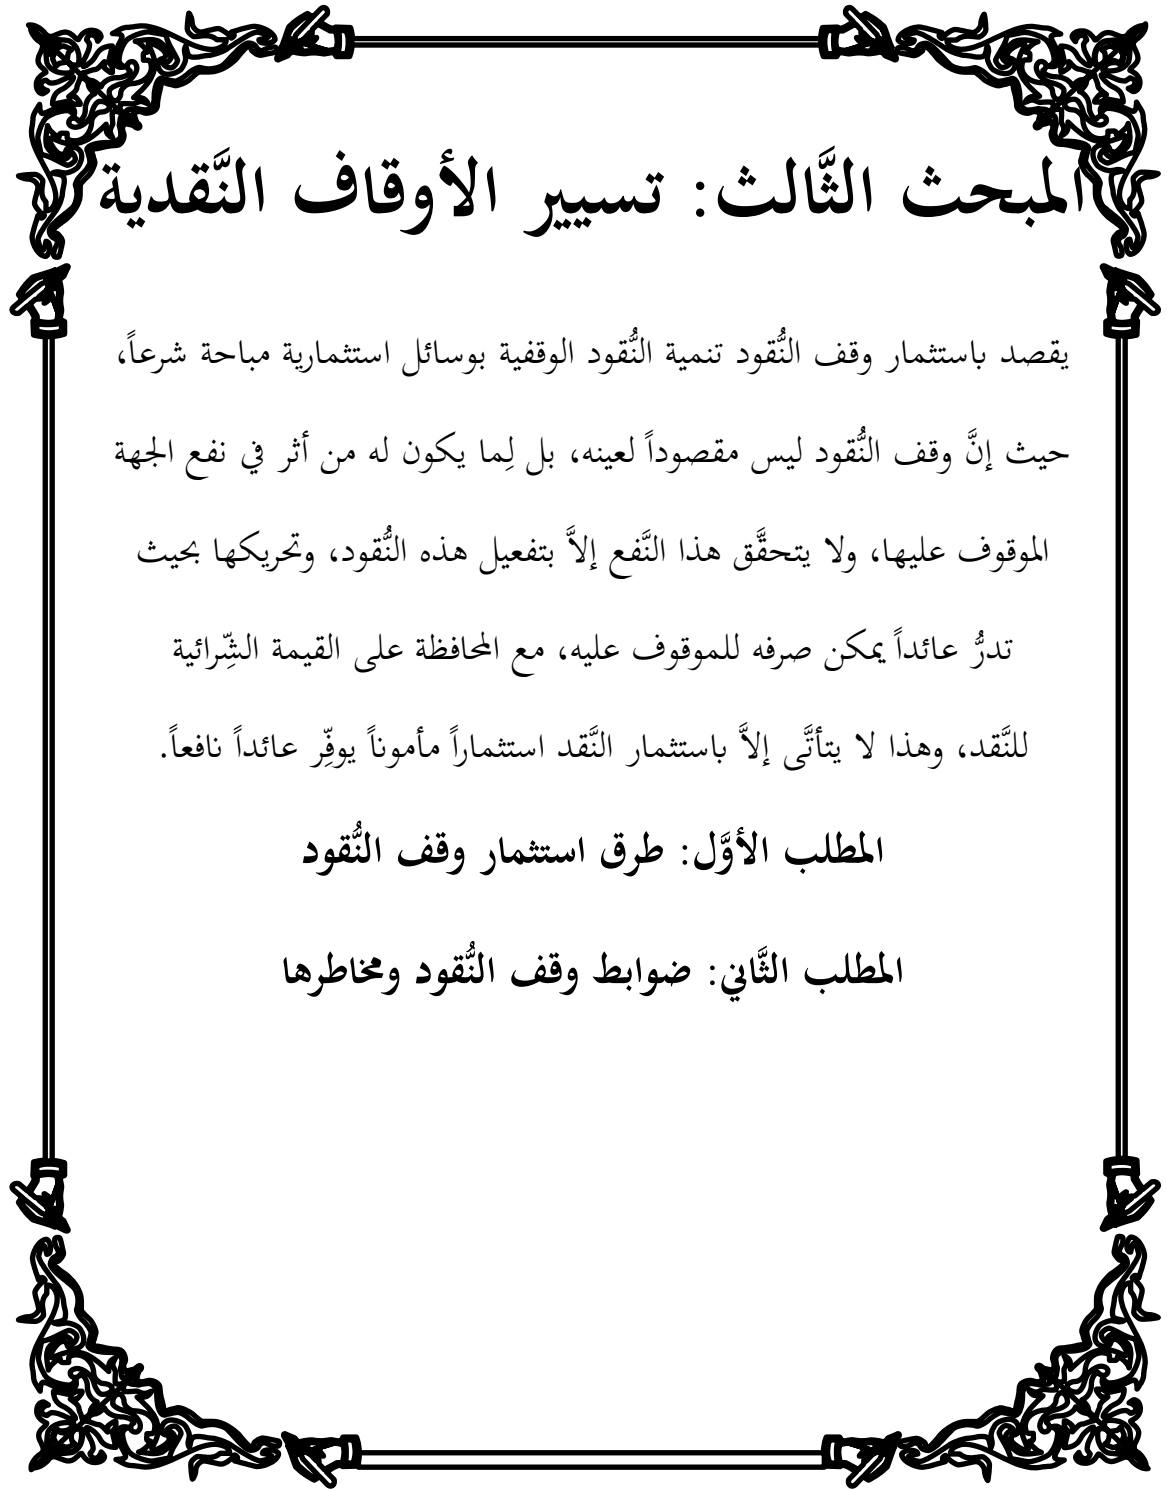 المبحث الثَّالث: تسيير الأوقاف النَّقدية
يقصد باستثمار وقف النُّقود تنمية النُّقود الوقفية بوسائل استثمارية مباحة شرعاً،
حيث إنَّ وقف النُّقود ليس مقصوداً لعينه، بل لِما يكون له من أثر في نفع الجهة
الموقوف عليها، ولا يتحقَّق هذا النَّفع إلاَّ بتفعيل هذه النُّقود، وتحريكها بحيث
تدرُّ عائداً يمكن صرفه للموقوف عليه، مع المحافظة على القيمة الشِّرائية
للنَّقد، وهذا لا يتأتَّى إلاَّ باستثمار النَّقد استثماراً مأموناً يوفِّر عائداً نافعاً.
المطلب الأوَّل: طرق استثمار وقف النُّقود
المطلب الثَّاني: ضوابط وقف النُّقود ومخاطرها